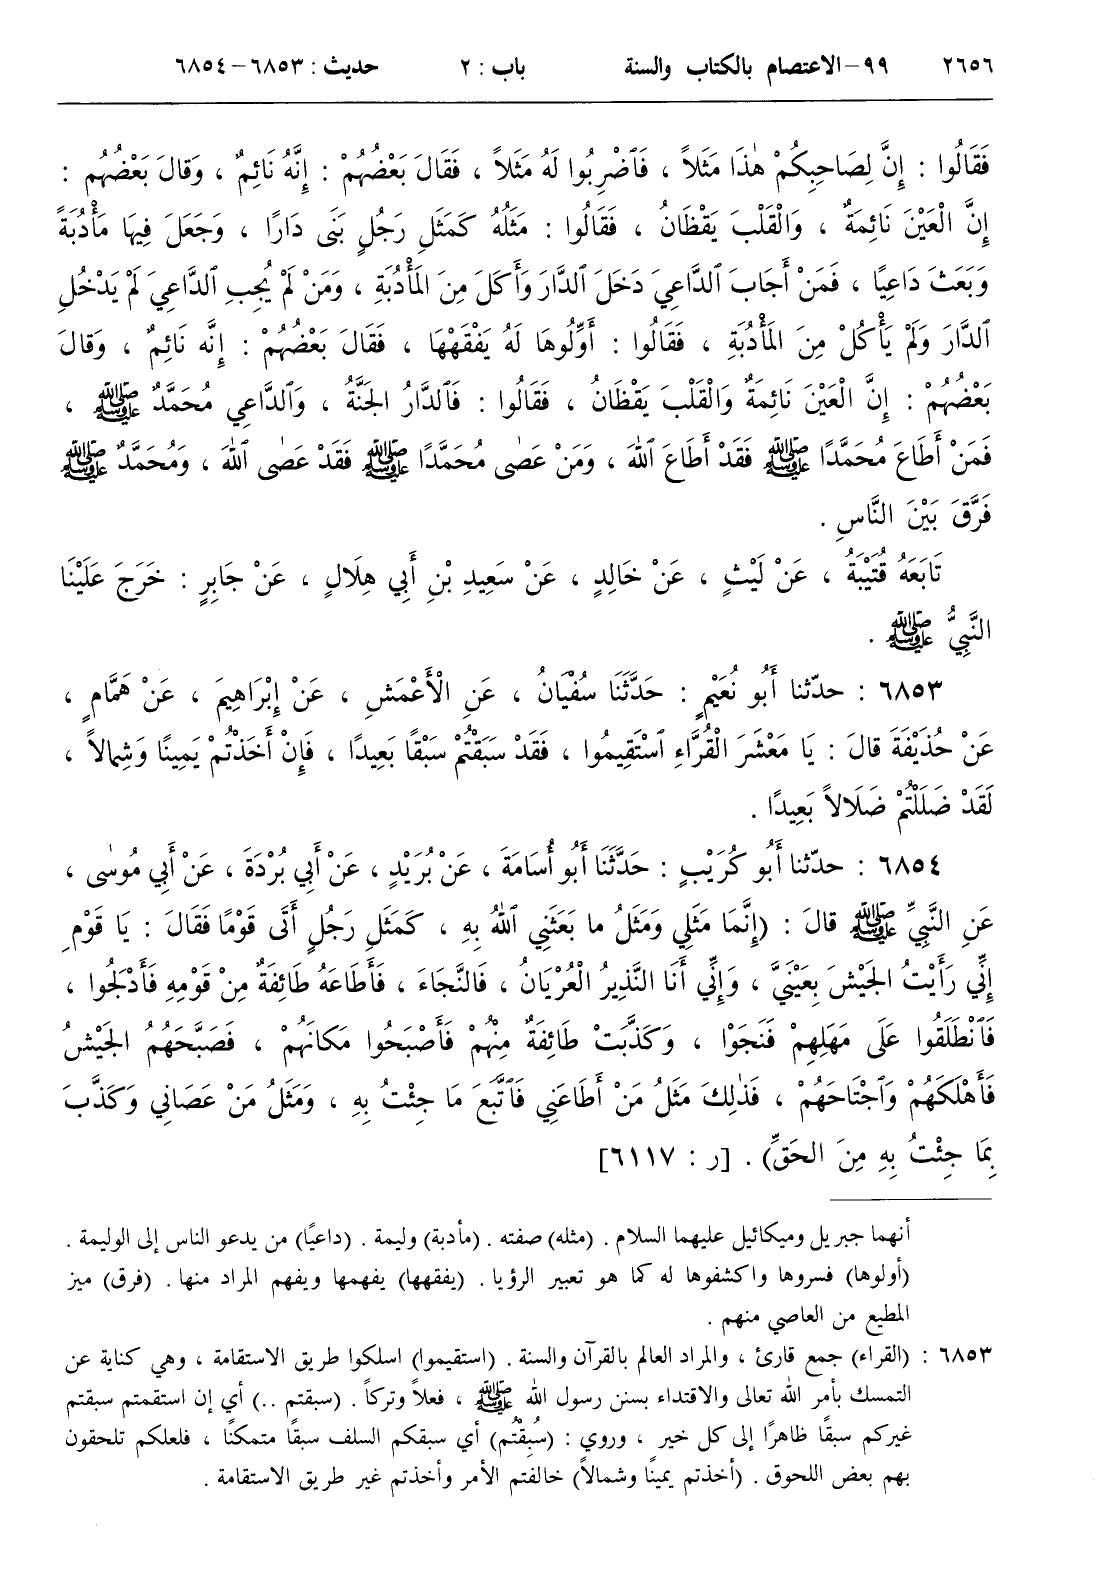 ٢٦٥٦ ٩٩-الاعتصام بالكتاب والسنة باب : ٢ حديث : ٦٨٥٣-٦٨٥٤
فَقَالُوا : إِنَّ لِصَاحِبِكُمْ هٰذَا مَثَلاً ، فَٱضْرِبُوا لَهُ مَثَلاً ، فَقَالَ بَعْضُهُمْ : إِنَّهُ نَائِمٌ ، وَقالَ بَعْضُهُمْ :
إِنَّ الْعَيْنَ نَائِمَةٌ ، وَالْقَلْبَ يَقْظَانُ ، فَقَالُوا : مَثَلُهُ كَمَثَلِ رَجُلٍ بَنَى دَارًا ، وَجَعَلَ فِيهَا مَأْدُبَةً
وَبَعَثَ دَاعِيًا ، فَمَنْ أَجَابَ ٱلدَّاعِيَ دَخَلَ ٱلدَّارَ وَأَكَلَ مِنَ المَأْدُبَةِ ، وَمَنْ لَمْ يُجِبِ ٱلدَّاعِيَ لَمْ يَدْخُلِ
ٱلدَّارَ وَلَمْ يَأْكُلْ مِنَ المَأْدُبَةِ ، فَقَالُوا : أَوِّلُوهَا لَهُ يَفْقَهْهَا ، فَقَالَ بَعْضُهُمْ : إِنَّه نَائِمٌ ، وَقالَ
بَعْضُهُمْ : إِنَّ الْعَيْنَ نَائِمَةٌ وَالْقَلْبَ يَقْظَانُ ، فَقَالُوا : فَٱلدَّارُ الجَنَّةُ ، وَٱلدَّاعِي مُحَمَّدٌ ﷺ ،
فَمَنْ أَطَاعَ مُحَمَّدًا ﷺ فَقَدْ أَطَاعَ ٱللهَ ، وَمَنْ عَصٰى مُحَمَّدًا ﷺ فَقَدْ عَصٰى ٱللهَ ، وَمُحَمَّدٌ ﷺ
فَرَّقَ بَيْنَ النَّاسِ .
تَابَعَهُ قُتَيْبَةُ ، عَنْ لَيْثٍ ، عَنْ خَالِدٍ ، عَنْ سَعِيدِ بْنِ أَبِي هِلَالٍ ، عَنْ جَابِرٍ : خَرَجَ عَلَيْنَا
النَّبِيُّ ﷺ .
٦٨٥٣ : حدّثنا أَبُو نُعَيْمٍ : حَدَّثَنَا سُفْيَانُ ، عَنِ الْأَعْمَشِ ، عَنْ إِبْرَاهِيمَ ، عَنْ هَمَّامٍ ،
عَنْ حُذَيْفَةَ قالَ : يَا مَعْشَرَ الْقُرَّاءِ ٱسْتَقِيمُوا ، فَقَدْ سَبَقْتُمْ سَبْقًا بَعِيدًا ، فَإِنْ أَخَذْتُمْ يَمِينًا وَشِمالاً ،
لَقَدْ ضَلَلْتُمْ ضَلَالاً بَعِيدًا .
٦٨٥٤ : حدّثنا أَبُو كُرَيْبٍ : حَدَّثَنَا أَبُو أُسَامَةَ ، عَنْ بُرَيْدٍ ، عَنْ أَبِي بُرْدَةَ ، عَنْ أَبِي مُوسٰى ،
عَنِ النَّبِيِّ ﷺ قالَ : (إِنَّمَا مَثَلِي وَمَثَلُ ما بَعَثَنِي ٱللهُ بِهِ ، كَمَثَلِ رَجُلٍ أَتَى قَوْمًا فَقَالَ : يَا قَوْمِ
إِنِّي رَأَيْتُ الجَيْشَ بِعَيْنَيَّ ، وَإِنِّي أَنَا النَّذِيرُ الْعُرْيَانُ ، فَالنَّجَاءَ ، فَأَطَاعَهُ طَائِفَةٌ مِنْ قَوْمِهِ فَأَدْلَجُوا ،
فَٱنْطَلَقُوا عَلَى مَهَلِهِمْ فَنَجَوْا ، وَكَذَّبَتْ طَائِفَةٌ مِنْهُمْ فَأَصْبَحُوا مَكانَهُمْ ، فَصَبَّحَهُمُ الجَيْشُ
فَأَهْلَكَهُمْ وَٱجْتَاحَهُمْ ، فَذٰلِكَ مَثَلُ مَنْ أَطَاعَنِي فَٱتَّبَعَ مَا جِئْتُ بِهِ ، وَمَثَلُ مَنْ عَصَانِي وَكَذَّبَ
بِمَا جِئْتُ بِهِ مِنَ الحَقِّ) . [ر : ٦١١٧]
أنهما جبريل وميكائيل عليهما السلام . (مثله) صفته . (مأدبة) وليمة . (داعيًا) من يدعو الناس إلى الوليمة .
(أولوها) فسروها واكشفوها له كما هو تعبير الرؤيا . (يفقهها) يفهمها ويفهم المراد منها . (فرق) ميز
المطيع من العاصي منهم .
٦٨٥٣ : (القراء) جمع قارئ ، والمراد العالم بالقرآن والسنة . (استقيموا) اسلكوا طريق الاستقامة ، وهي كناية عن
التمسك بأمر الله تعالى والاقتداء بسنن رسول الله ﷺ ، فعلاً وتركاً . (سبقتم ..) أي إن استقمتم سبقتم
غيركم سبقًا ظاهرًا إلى كل خير ، وروي : (سُبِقْتُم) أي سبقكم السلف سبقًا متمكنًا ، فلعلكم تلحقون
بهم بعض اللحوق . (أخذتم يمينًا وشمالاً) خالفتم الأمر وأخذتم غير طريق الاستقامة .